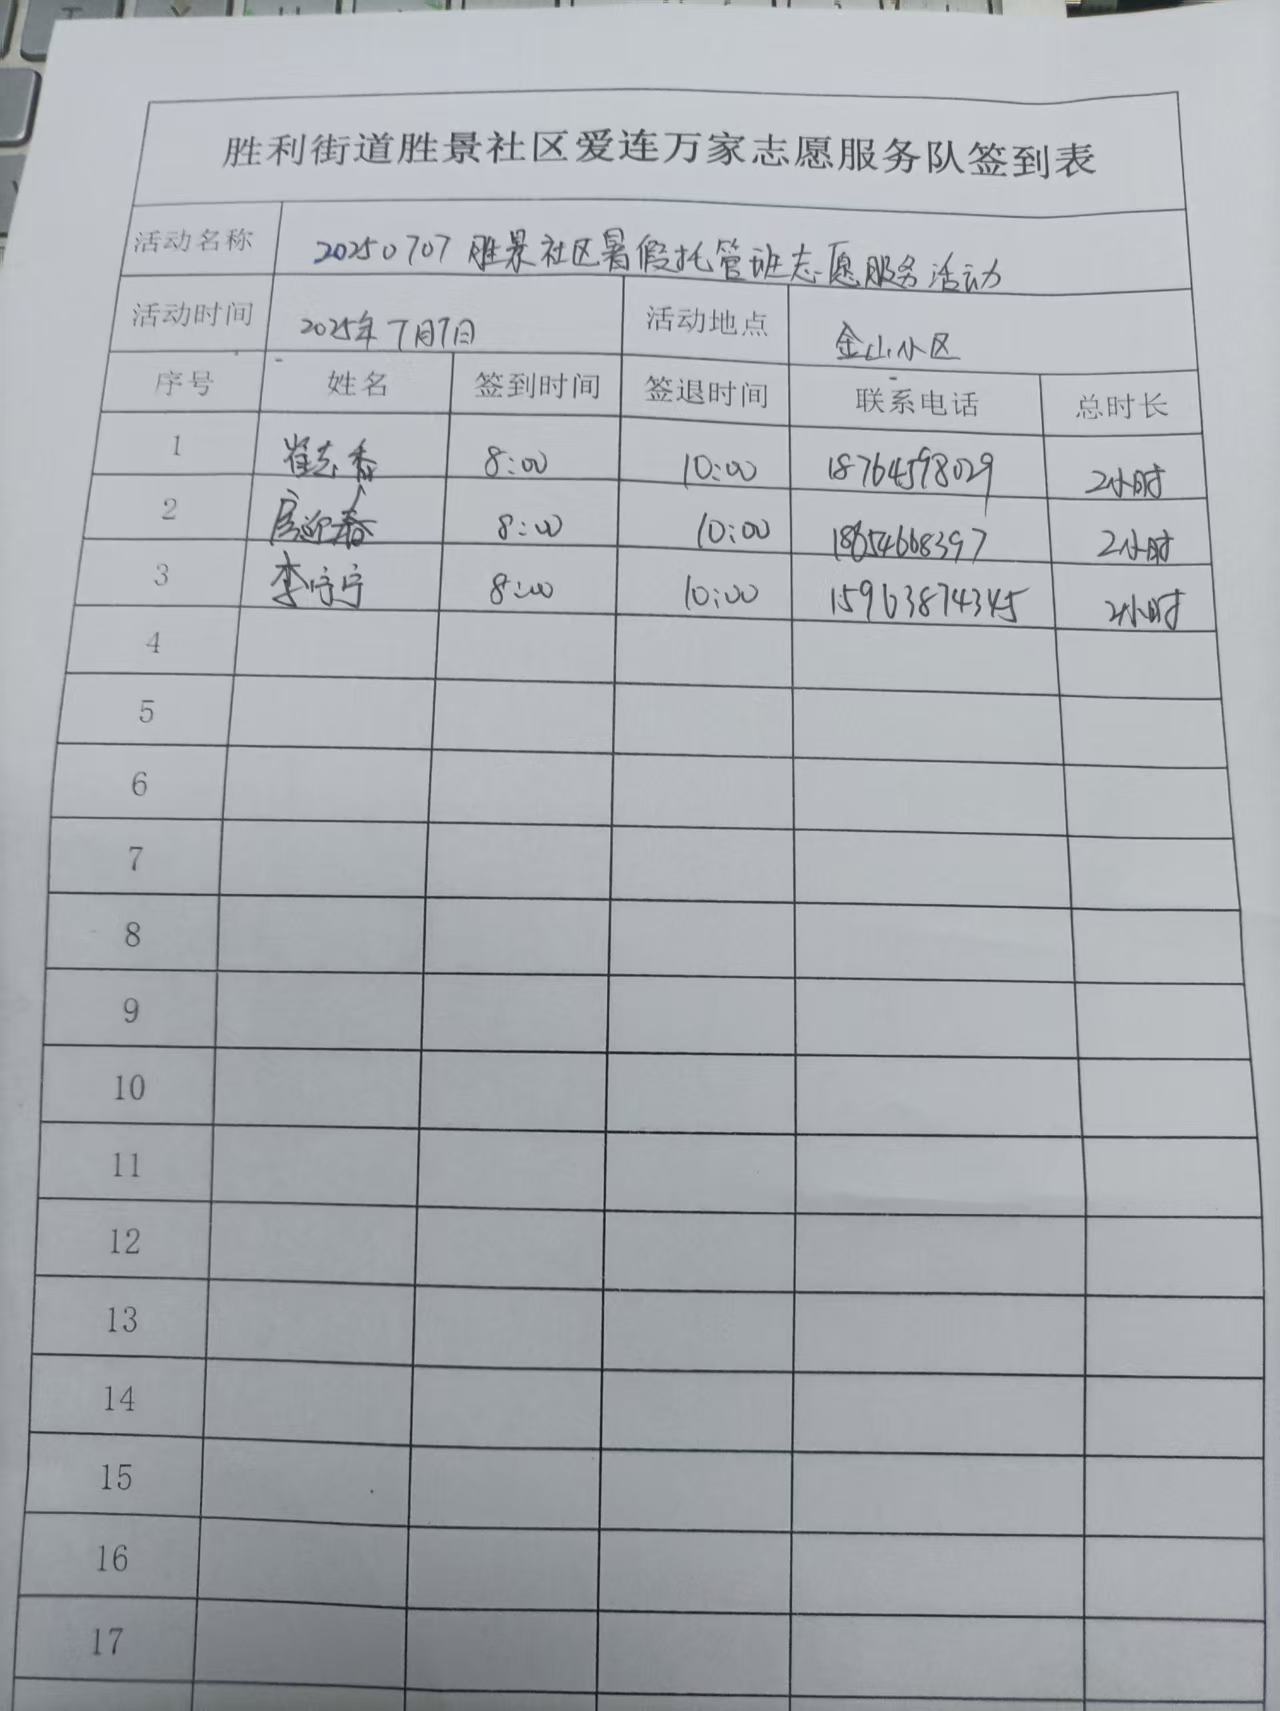 胜利街道胜景社区爱连万家志愿服务队签到表
活动名称 20250707 胜景社区暑假托管班志愿服务活动
活动时间 2025年7月7日 活动地点 金山小区
序号 姓名 签到时间 签退时间 联系电话 总时长
1 崔志香 8:00 10:00 18764598029 2小时
2 房迎春 8:00 10:00 18654668397 2小时
3 李宁宁 8:00 10:00 15963874345 2小时
4
5
6
7
8
9
10
11
12
13
14
15
16
17